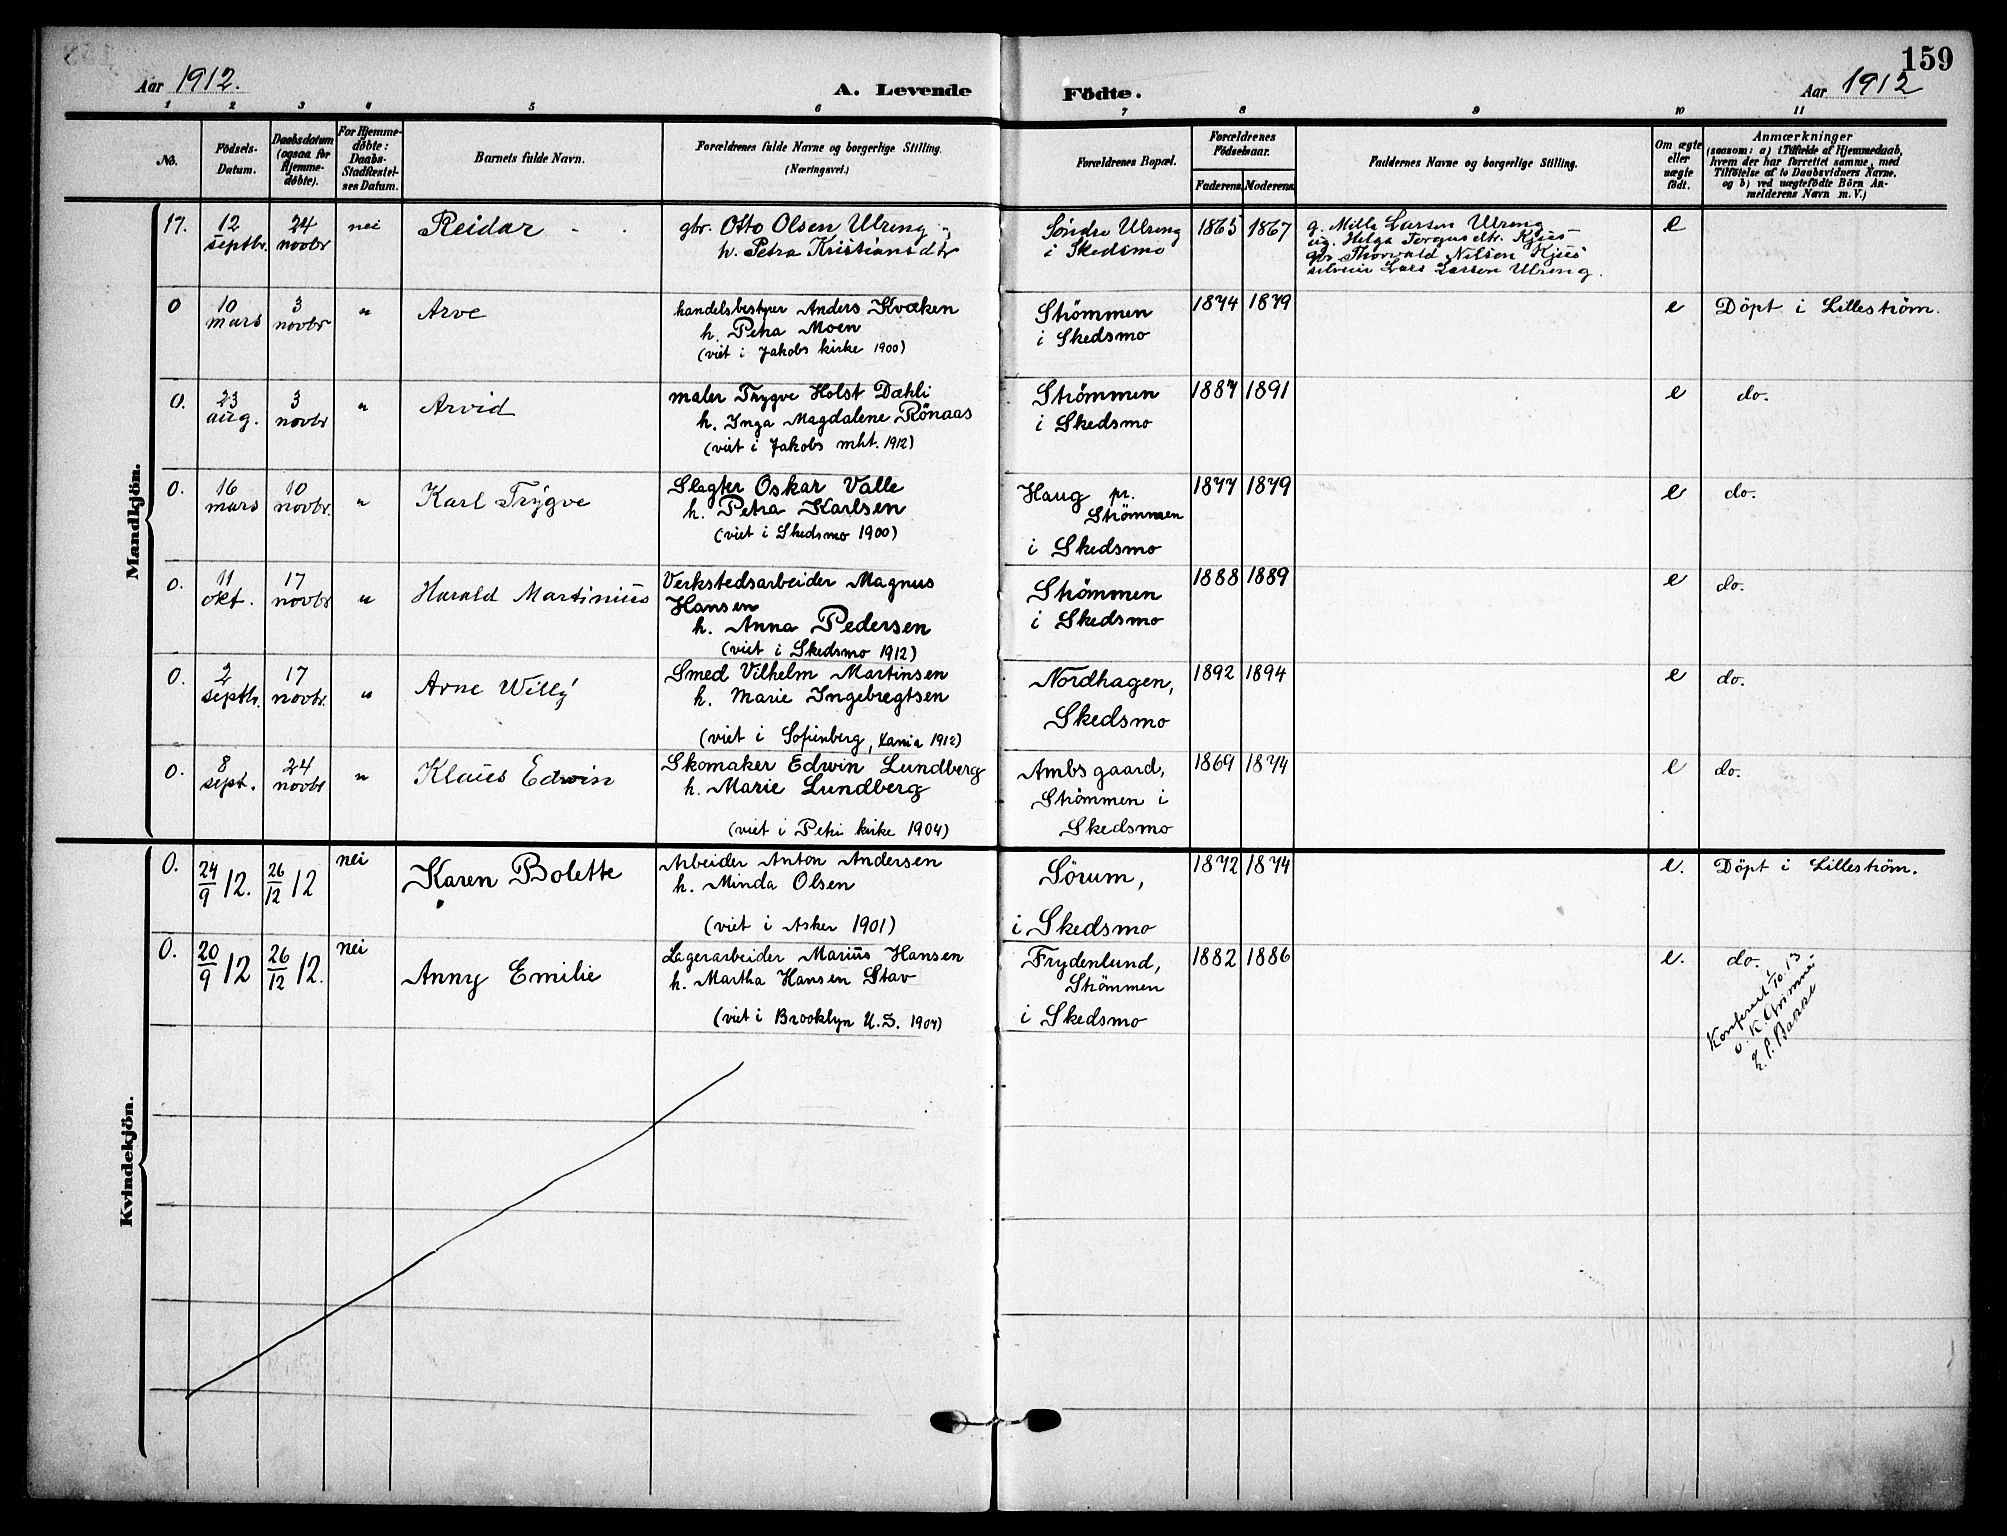 159
Aar 1912.
A. Levende Födte.
Aar 1912
1 2 3 4 5 6 7 8 9 10 11
No.
Födsels-Datum.
Daabsdatum (ogsaa for Hjemme-döbte).
For Hjemme-döbte: Daabs-Stadfæstel-ses Datum.
Barnets fulde Navn.
Forældrenes fulde Navne og borgerlige Stilling.
(Næringsvei.)
Forældrenes Bopæl.
Forældrenes Födselsaar.
Faderens. Moderens.
Faddernes Navne og borgerlige Stilling.
Om ægte eller uægte födt.
Anmærkninger
(saasom: a) i Tilfælde af Hjemmedaab,
hvem der har forrettet samme, med
Tilföielse af to Daabsvidners Navne.
og b) ved uægtefödte Börn An-
melderens Navn m. V.)
Mandkjön.
17. 12 septbr. 24 novbr nei Reidar
gbr. Otto Olsen Ulreng
h. Petra Kristiansdtr
Søndre Ulreng
i Skedsmo
1865 1867
g. Mille Larsen Ulreng
ug. Helga Torgusdtr. Kjus
gbr Thorvald Nilsen Kjus
selveier Lars Larsen Ulreng.
e
0 10 mars 3 novbr " Arve
handelsbestyrer Anders Kvaken
h. Petra Moen
(viet i Jakobs kirke 1900)
Strömmen
i Skedsmo
1874 1879
e Döpt i Lilleström.
0. 23 aug. 3 novbr " Arvid
maler Trygve Holst Dæhli
h. Inga Magdalene Rönaas
(viet i Jakobs mht. 1912)
Strömmen
i Skedsmo
1887 1891
e do.
0. 16 mars 10 novbr. " Karl Trygve
Slagter Oskar Valle
h. Petra Karlsen
(viet i Skedsmo 1900)
Haug pr.
Strömmen
i Skedsmo
1877 1879
e do.
0. 11 okt. 17 novbr " Harald Martinius
Verkstedsarbeider Magnus
Hansen
h. Anna Pedersen
(viet i Skedsmo 1912)
Strömmen
i Skedsmo
1888 1889
e do.
0. 2 septbr. 17 novbr. " Arne Willy
Smed Vilhelm Martinsen
h. Marie Ingebregtsen
(viet i Sofienberg, Xania 1912)
Nordhagen,
Skedsmo
1892 1894
e do.
0. 8 sept. 24 novbr " Klaus Edwin
Skomaker Edwin Lundberg
h. Marie Lundberg
(viet i Petri kirke 1904)
Ambsgaard,
Strömmen i
Skedsmo
1869 1874
e do.
Kvindekjön.
0. 24/9 12. 26/12 12 nei Karen Bolette
Arbeider Anton Andersen
h. Minda Olsen
(viet i Asker 1901)
Sörum,
i Skedsmo
1872 1874
e. Döpt i Lilleström.
0. 20/9 12 26/12 12. nei Anny Emilie
Lagerarbeider Marius Hansen
h. Martha Hansen Stav
(viet i Brooklyn U.S. 1904)
Frydenlund,
Strömmen
i Skedsmo
1882 1886
e. do.
Konferert 1/10.13